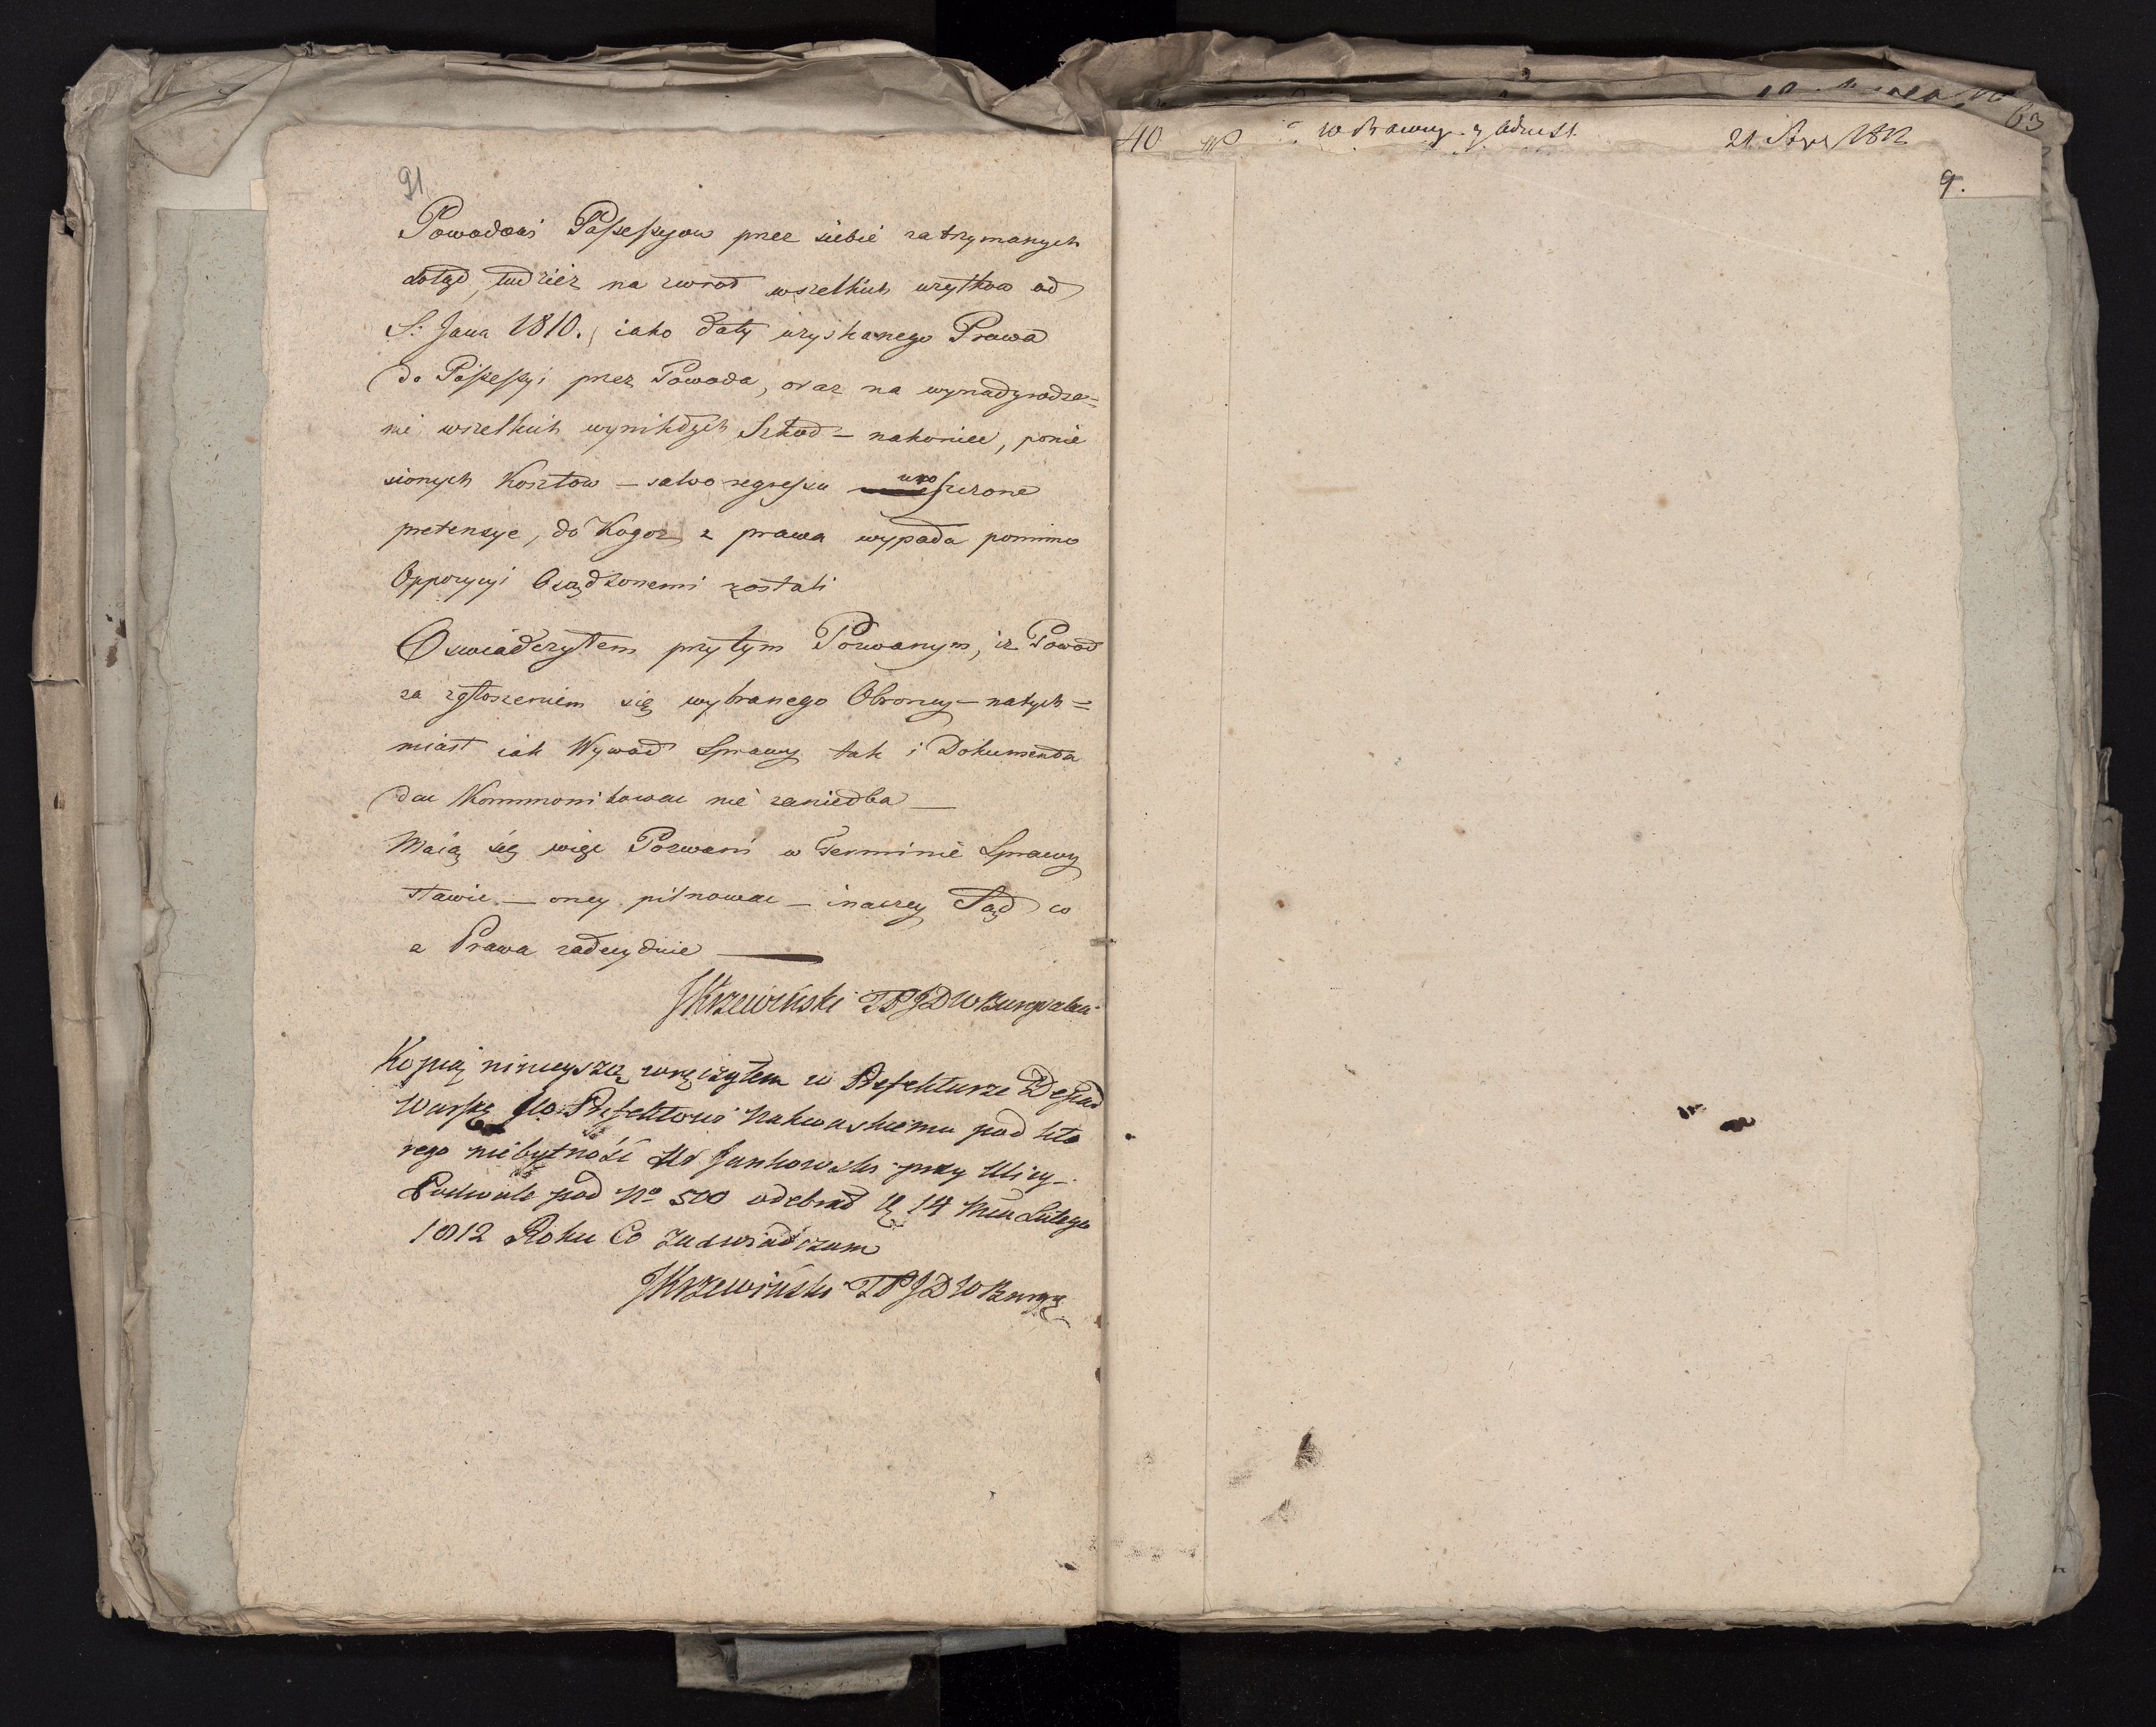 91
Powodowi Possessyow przez siebie zatrzymanych
dotąd, tudzież na zwrod wszelkich użytkow od
S: Jana 1810., iako daty uzyskanego Prawa
do Possessyi przez Powoda, oraz na wynadgrodze=
nie wszelkich wynikłych Szkod – nakoniec, ponie
sionych Kosztow – salvo regressu
pretensye, do Kogoż z prawa wypada pomimo
Oppozycyi Osądzonemi zostali
Oswiadczyłem przytym Pozwanym, iż Powod
za zgłoszeniem się wybranego Obroncy – natych=
miast iak Wywod Sprawy tak i Dokumenta
dac Kommonikowac nie zaniedba —
Maią się więc Pozwani w Terminie Sprawy
stawic. — oney pilnowac — inaczey Sąd co
z Prawa zadecyduie —
JKrzewiński TPJDW
Kopią ninieyszą wręczyłem w Prefekturze
Prefektowi Nakwaskiemu pod kto
rego niebytność Jankowski przy Ulicy
Podwale pod No 500 odebrał 14 Lutego
1812 Roku Co zaswiadczam
JKrzewiński TPJDW
40
w Prawny
21 1812
63
9.